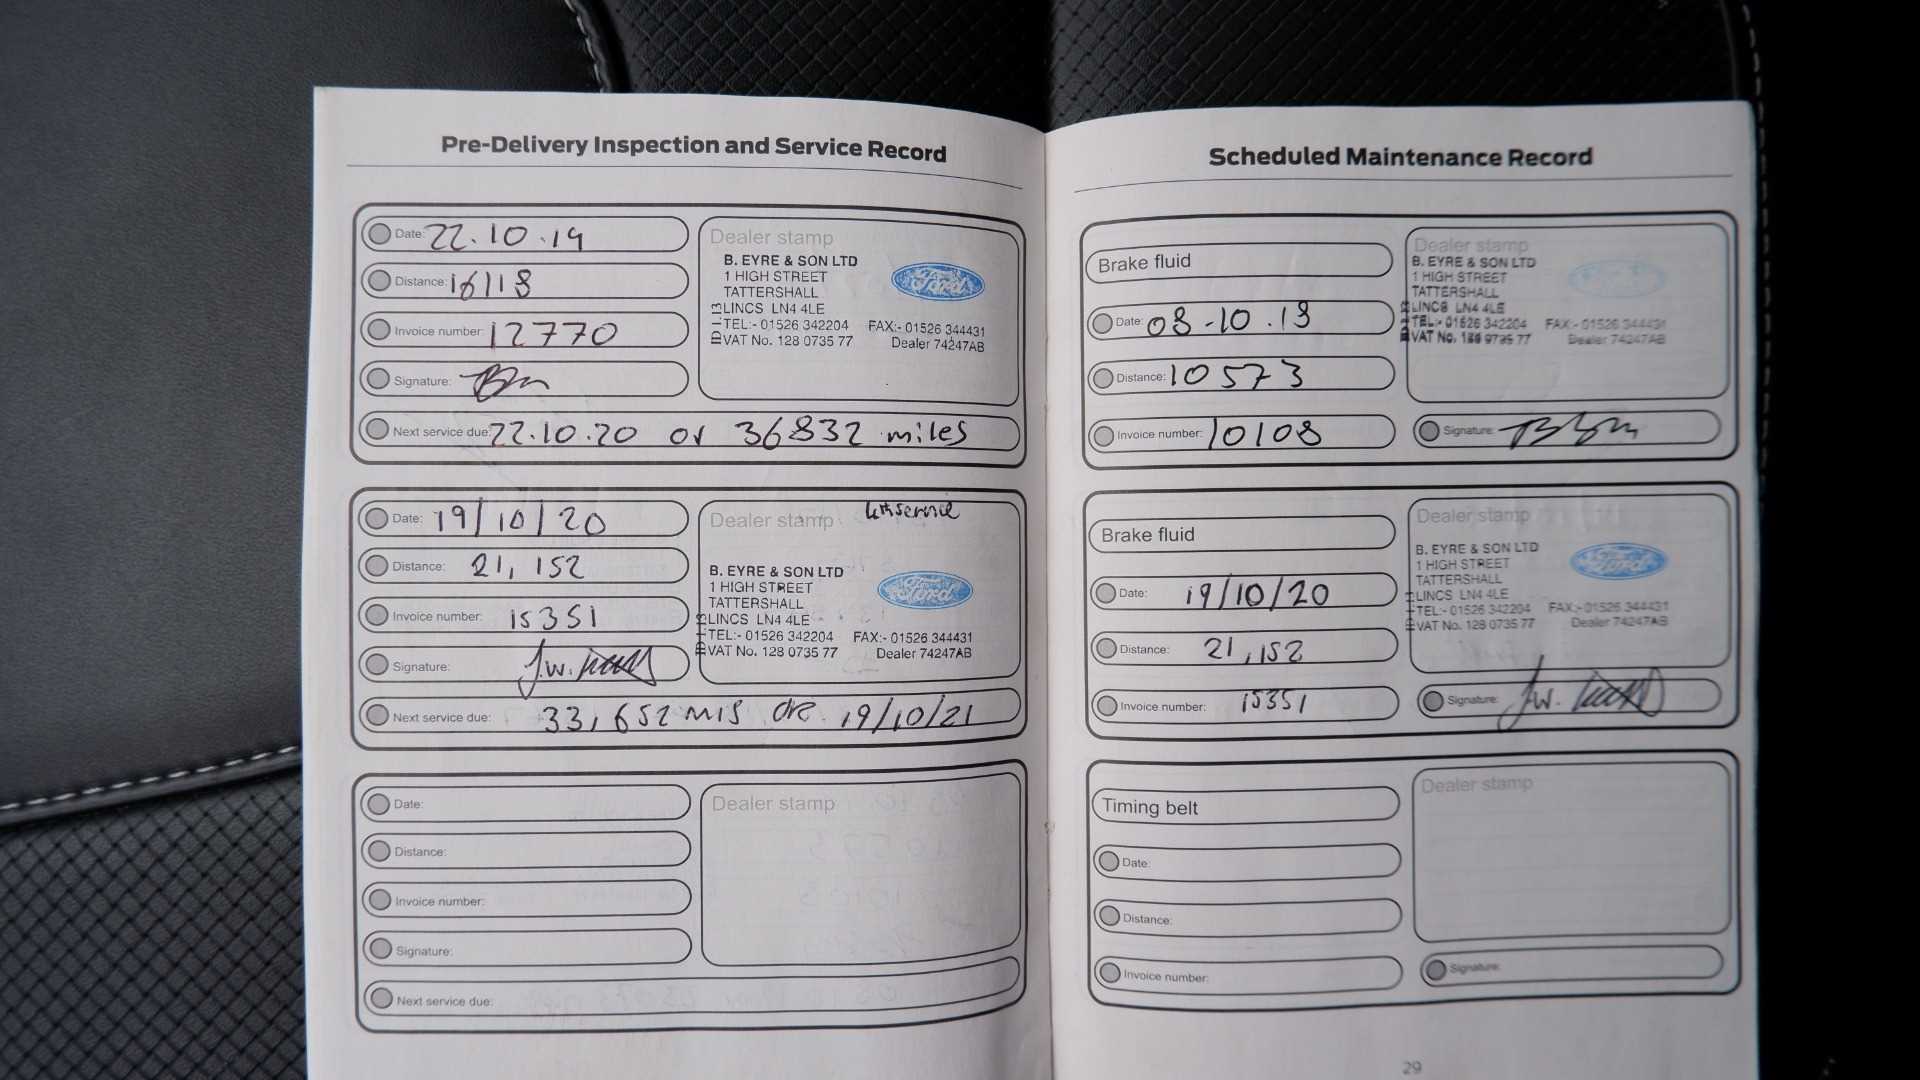 Pre-Delivery Inspection and Service Record
Date: 22.10.19
Distance: 16118
Invoice number: 12770
Signature:
Next service due: 22.10.20 or 36832 miles
Dealer stamp
B. EYRE & SON LTD
1 HIGH STREET
TATTERSHALL
LINCS LN4 4LE
TEL:- 01526 342204 FAX:- 01526 344431
VAT No. 128 0735 77 Dealer 74247AB
Ford
Date: 19/10/20
Distance: 21,152
Invoice number: 15351
Signature: J.W.
Next service due: 33,652 mls or 19/10/21
Dealer stamp 4th service
B. EYRE & SON LTD
1 HIGH STREET
TATTERSHALL
LINCS LN4 4LE
TEL:- 01526 342204 FAX:- 01526 344431
VAT No. 128 0735 77 Dealer 74247AB
Ford
Date:
Distance:
Invoice number:
Signature:
Next service due:
Dealer stamp
Scheduled Maintenance Record
Brake fluid
Date: 08.10.18
Distance: 10573
Invoice number: 10108
Dealer stamp
B. EYRE & SON LTD
1 HIGH STREET
TATTERSHALL
LINCS LN4 4LE
TEL:- 01526 342204 FAX:- 01526 344431
VAT No. 128 0735 77 Dealer 74247AB
Signature:
Brake fluid
Date: 19/10/20
Distance: 21,152
Invoice number: 15351
Dealer stamp
B. EYRE & SON LTD
1 HIGH STREET
TATTERSHALL
LINCS LN4 4LE
TEL:- 01526 342204 FAX:- 01526 344431
VAT No. 128 0735 77 Dealer 74247AB
Ford
Signature: J.W.
Timing belt
Date:
Distance:
Invoice number:
Dealer stamp
Signature:
29